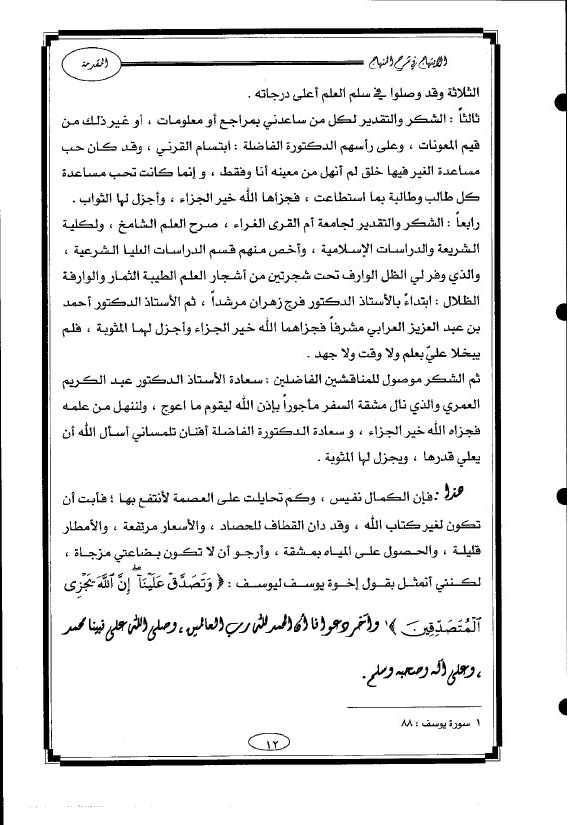 الابتهاج في شرح المنهاج
المقدمة
الثلاثة وقد وصلوا في سلم العلم أعلى درجاته .
ثالثاً : الشكر والتقدير لكل من ساعدني بمراجع أو معلومات ، أو غير ذلك من
قيم المعونات ، وعلى رأسهم الدكتورة الفاضلة : ابتسام القرني ، وقد كان حب
مساعدة الغير فيها خلق لم أنهل من معينه أنا وفقط ، و إنما كانت تحب مساعدة
كل طالب وطالبة بما استطاعت ، فجزاها الله خير الجزاء ، وأجزل لها الثواب .
رابعاً : الشكر والتقدير لجامعة أم القرى الغراء ، صرح العلم الشامخ ، ولكلية
الشريعة والدراسات الإسلامية ، وأخص منهم قسم الدراسات العليا الشرعية ،
والذي وفر لي الظل الوارف تحت شجرتين من أشجار العلم الطيبة الثمار والوارفة
الظلال : ابتداءً بالأستاذ الدكتور فرج زهران مرشداً ، ثم الأستاذ الدكتور أحمد
بن عبد العزيز العرابي مشرفاً فجزاهما الله خير الجزاء وأجزل لهما المثوبة ، فلم
يبخلا عليّ بعلم ولا وقت ولا جهد .
ثم الشكر موصول للمناقشين الفاضلين : سعادة الأستاذ الدكتور عبد الكريم
العمري والذي نال مشقة السفر مأجوراً بإذن الله ليقوم ما اعوج ، ولننهل من علمه
فجزاه الله خير الجزاء ، و سعادة الدكتورة الفاضلة أفنان تلمساني أسأل الله أن
يعلي قدرها ، ويجزل لها المثوبة .
هذا : فإن الكمال نفيس ، وكم تحايلت على العصمة لأنتفع بها ؛ فأبت أن
تكون لغير كتاب الله ، وقد دان القطاف للحصاد ، والأسعار مرتفعة ، والأمطار
قليلة ، والحصول على المياه بمشقة ، وأرجو أن لا تكون بضاعتي مزجاة ،
لكنني أتمثل بقول إخوة يوسف ليوسف : ﴿ وَتَصَدَّقْ عَلَيْنَآ ۖ إِنَّ ٱللَّهَ يَجْزِى
ٱلْمُتَصَدِّقِينَ ﴾١ وآخر دعوانا أن الحمد لله رب العالمين ، وصلى الله على نبينا محمد
، وعلى آله وصحبه وسلم .
١ سورة يوسف : ٨٨
١٢